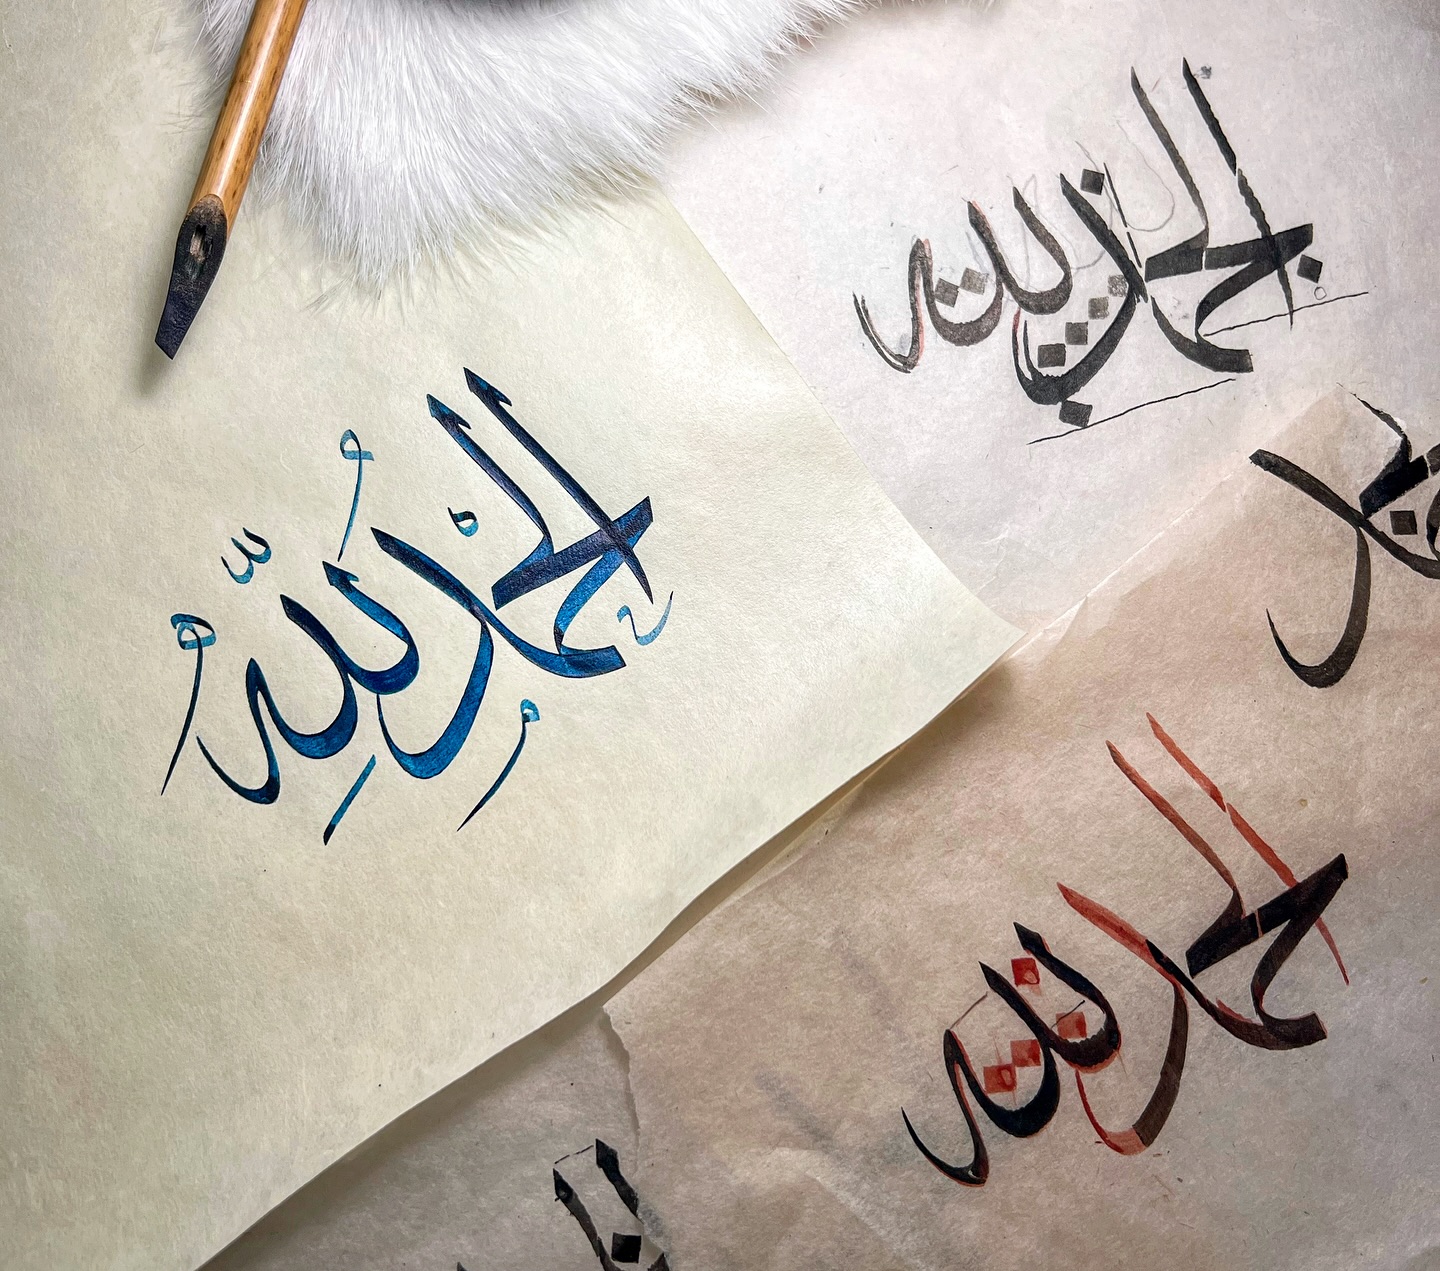 الحمد لله
الحمد لله
الحمد لله